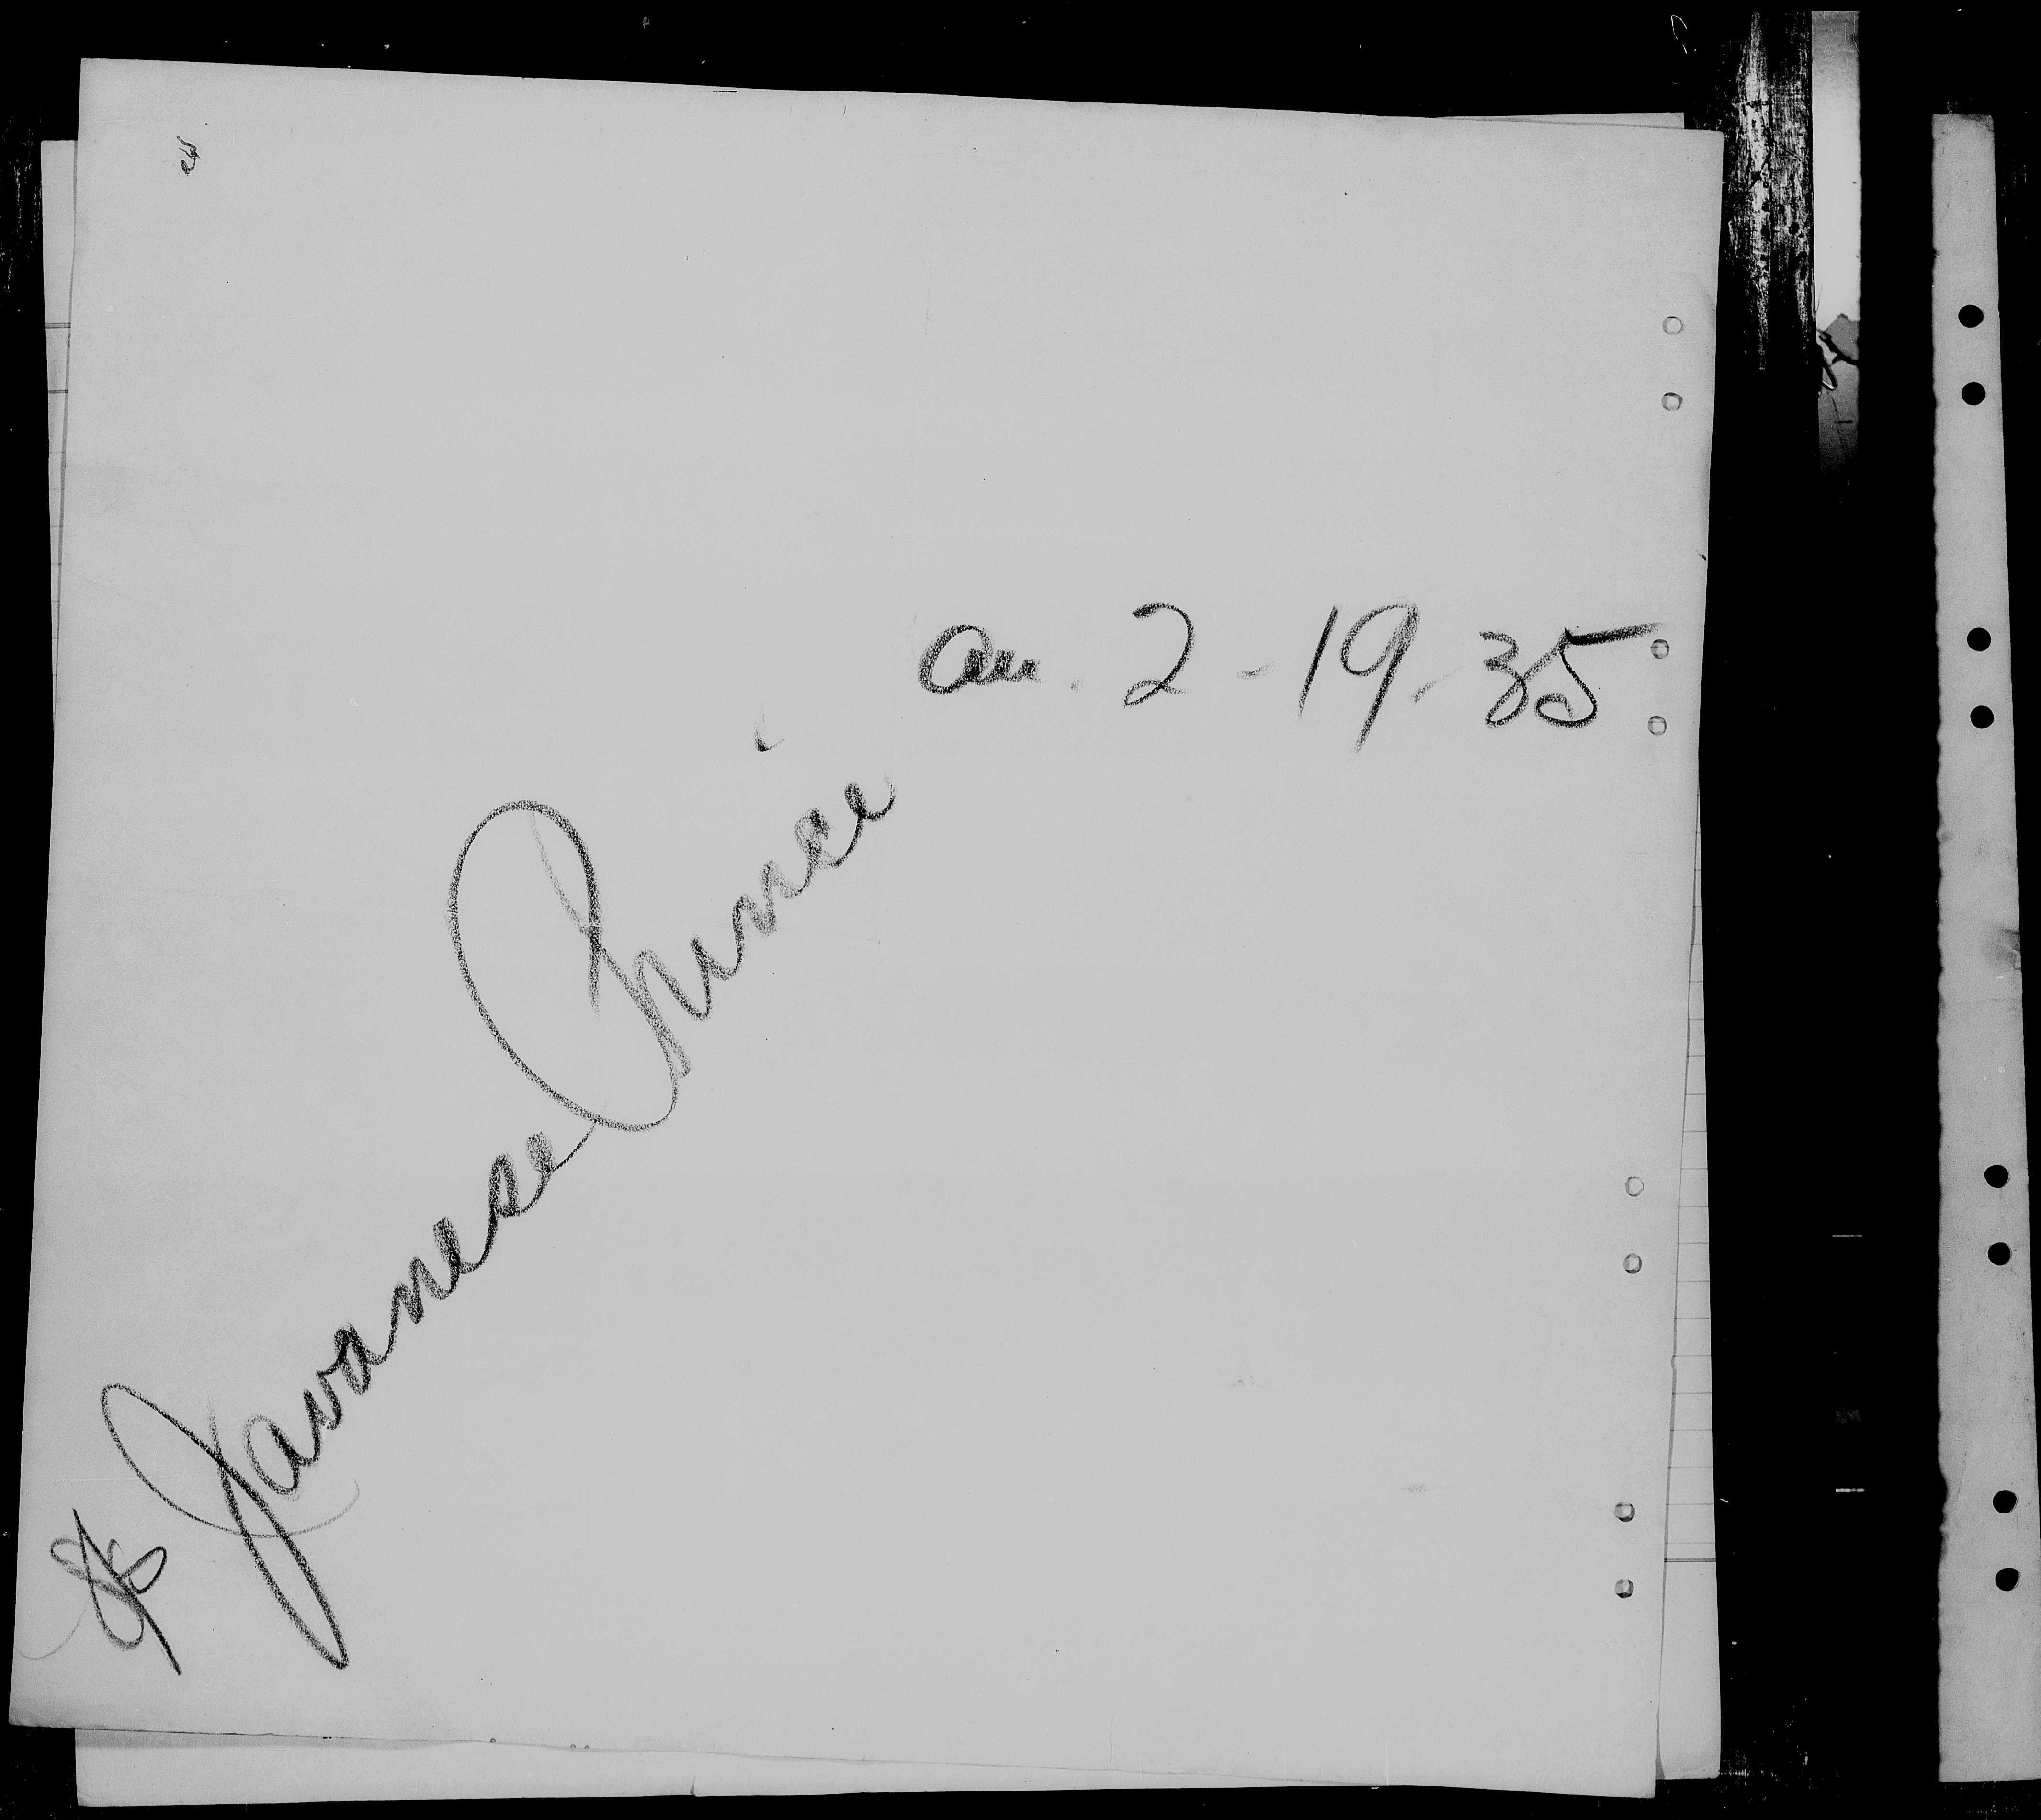 S/S Javanese Prince
arr. 2-19-35